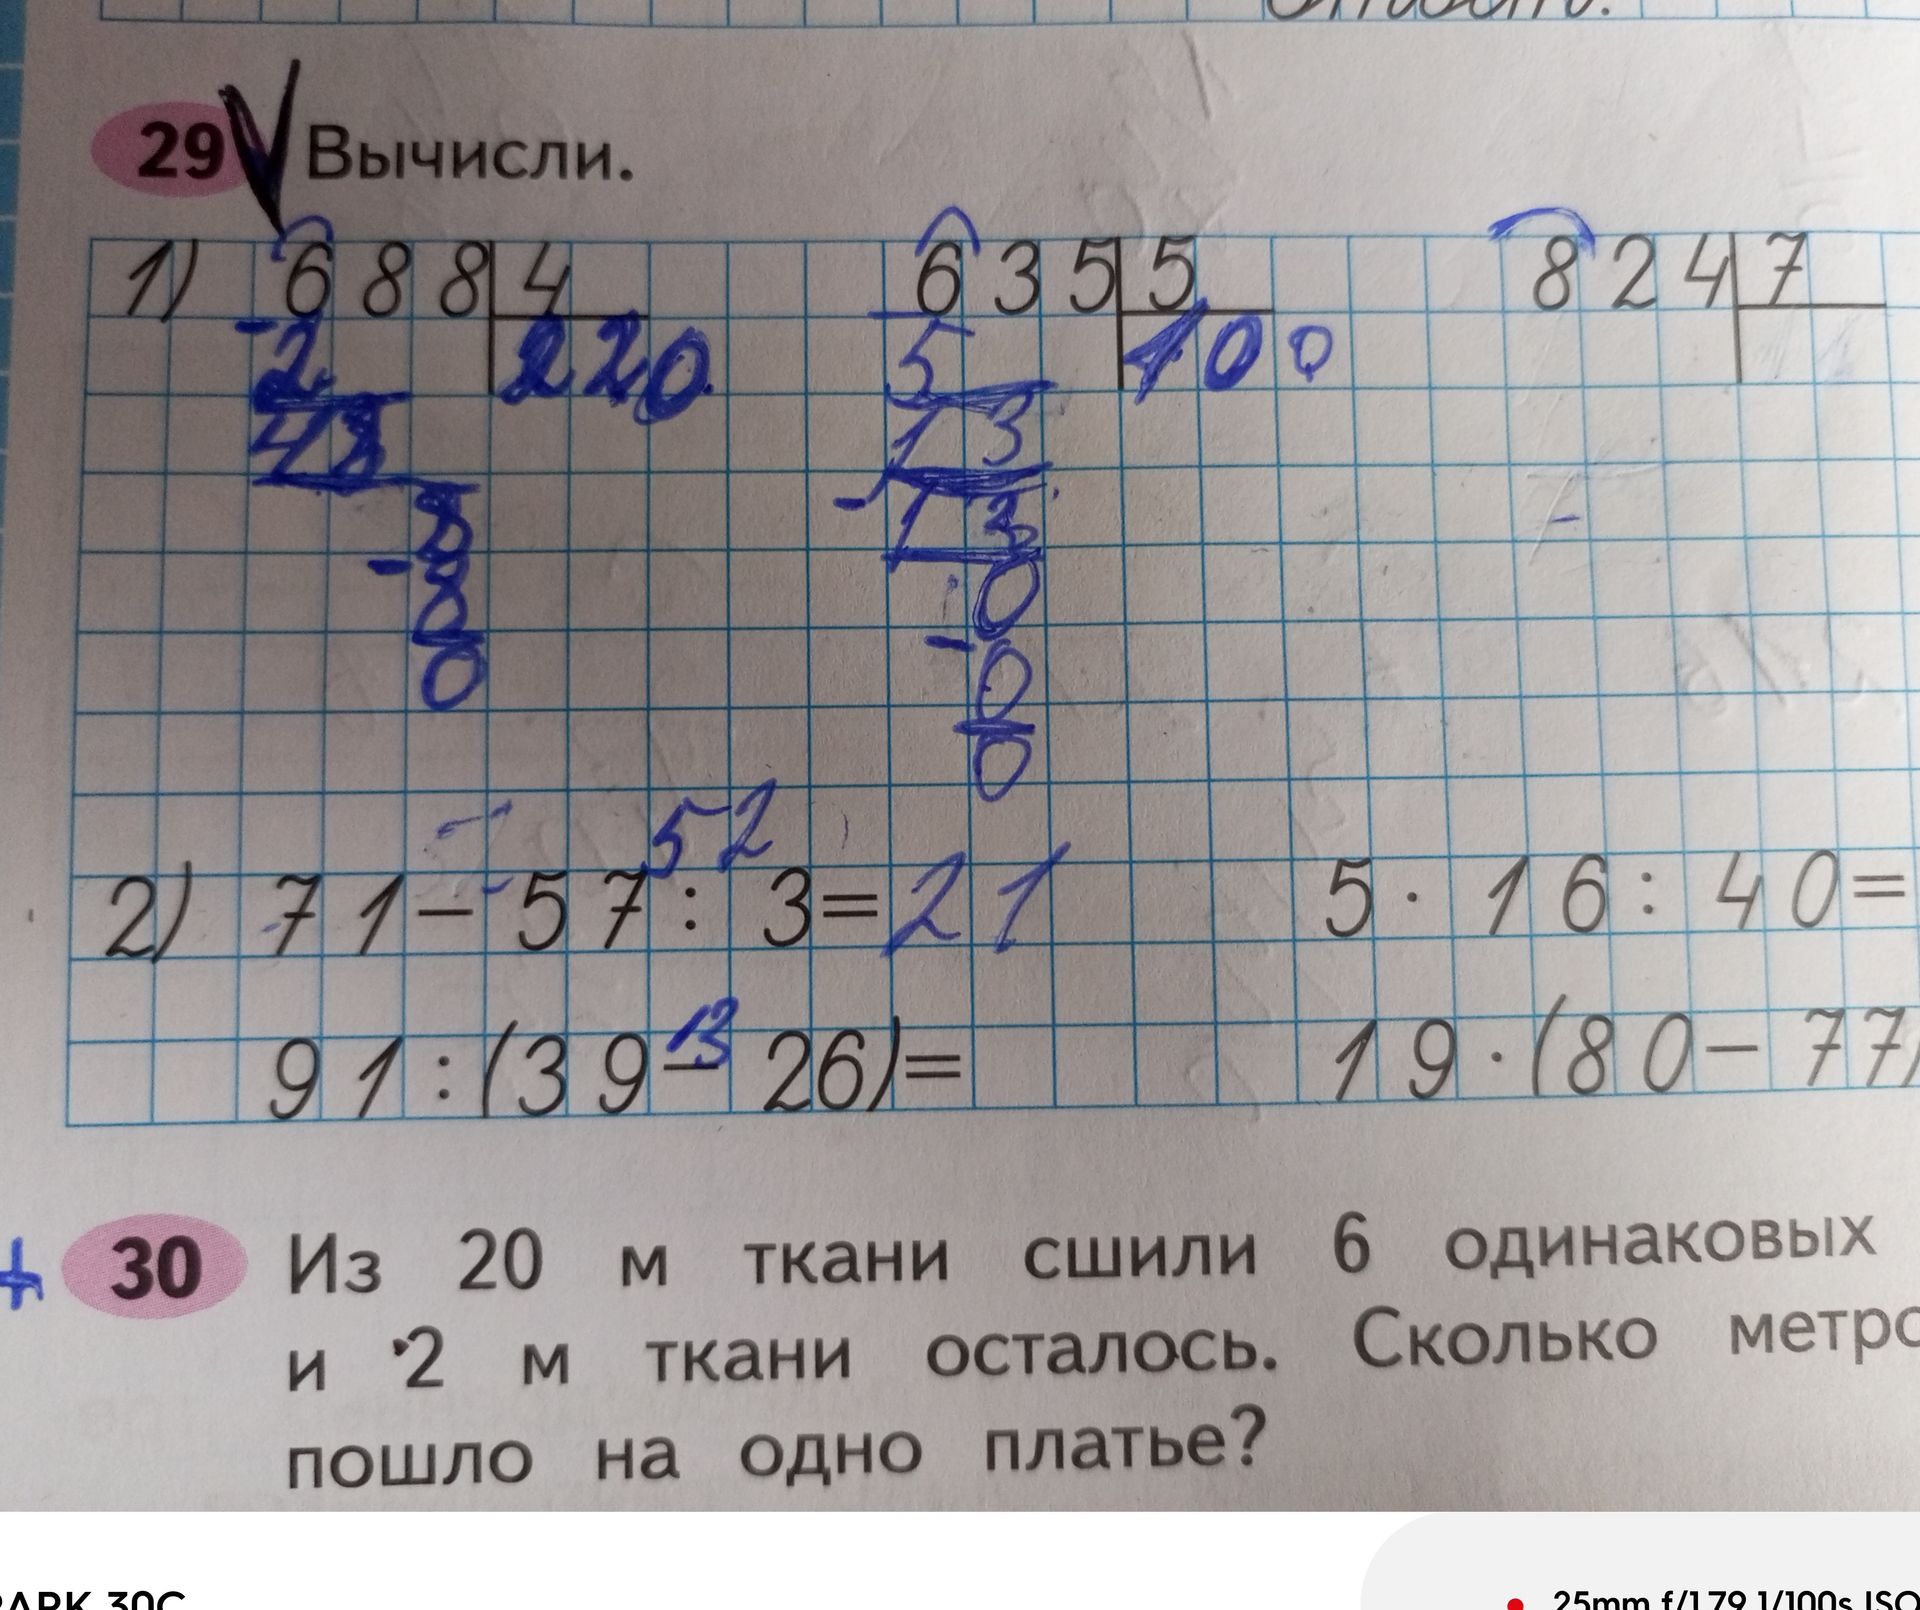 29 Вычисли.
1) 688 4 635 5 824 7
2 220 5 100
48 13
8 13
0 0
0 0
0
52
2) 71 − 57 : 3 = 21 5 · 16 : 40 =
13
91 : (39 − 26) = 19 · (80 − 77)
30 Из 20 м ткани сшили 6 одинаковых
и 2 м ткани осталось. Сколько метро
пошло на одно платье?
25mm f/1.79 1/100s ISO